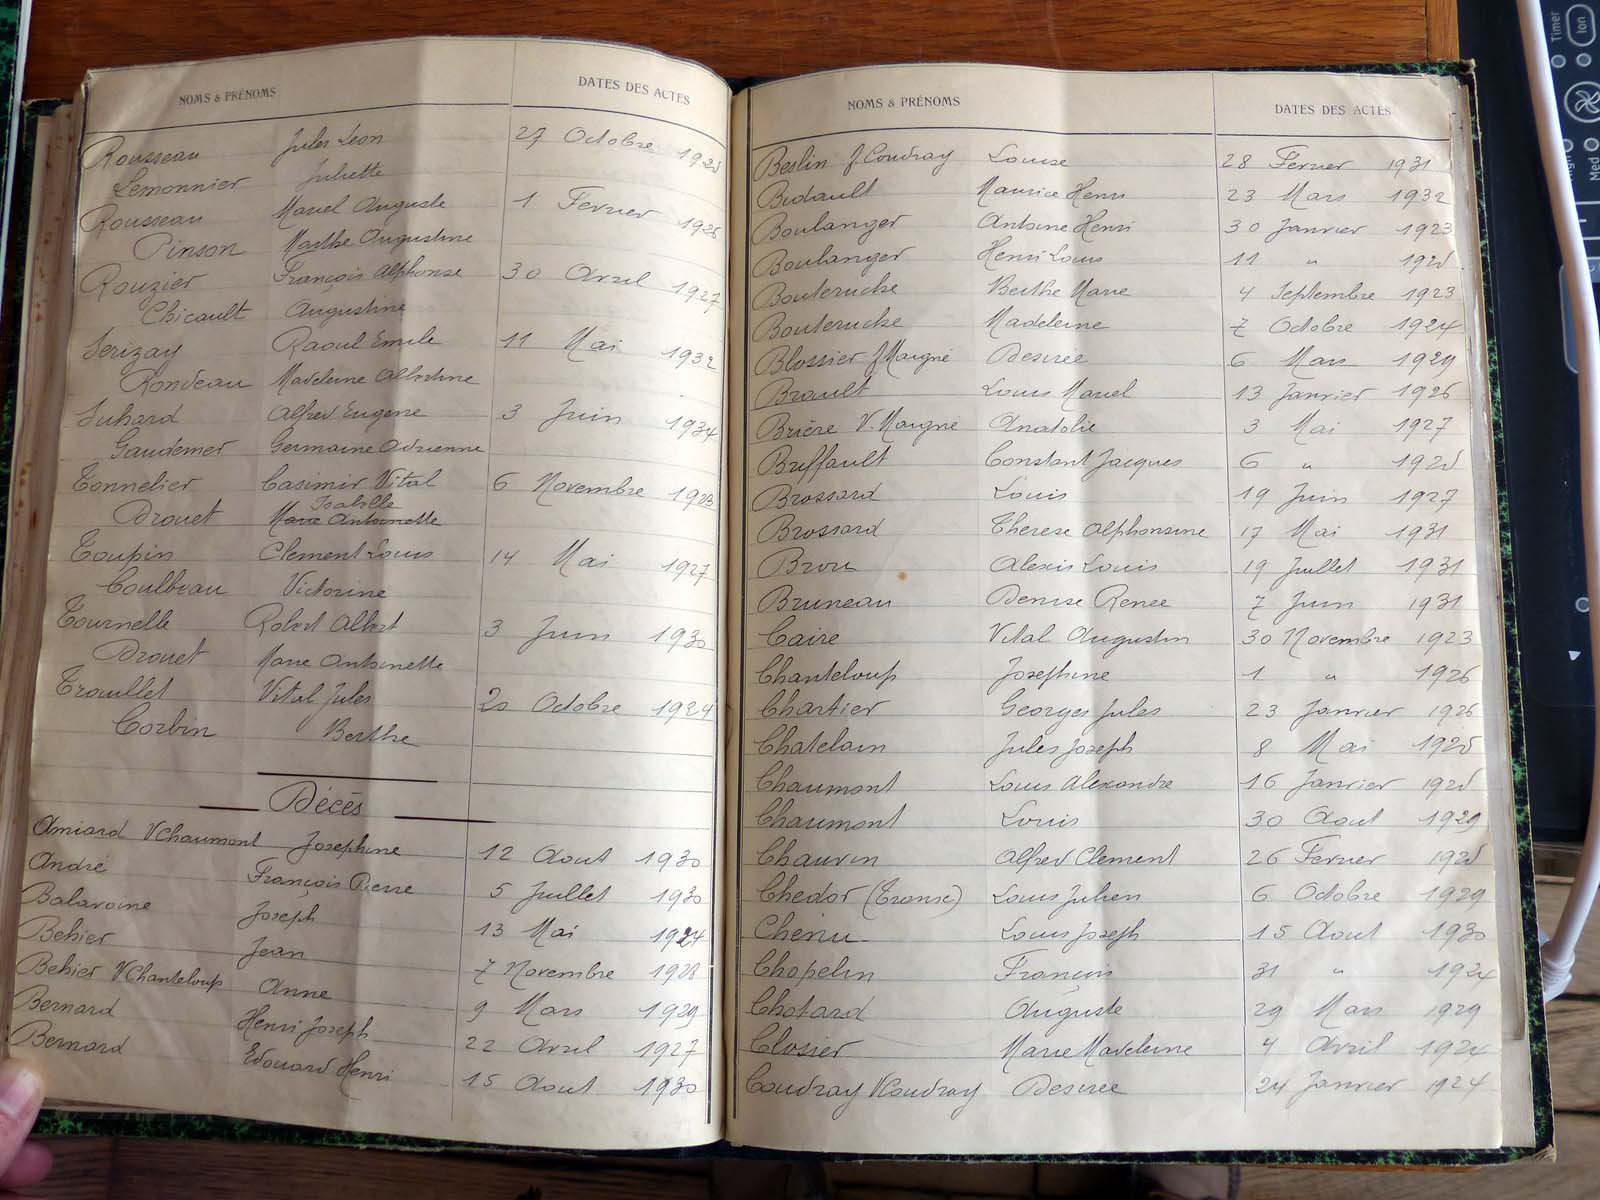 NOMS & PRÉNOMS DATES DES ACTES
Rousseau Jules Leon 27 Octobre 1925
Lemonnier Juliette
Rousseau Marcel Auguste 1 Fevrier 1926
Pinson Marthe Augustine
Rouzier François Alphonse 30 Avril 1927
Chicault Augustine
Serizay Raoul Emile 11 Mai 1932
Rondeau Madeleine Albertine
Suhard Alfred Eugene 3 Juin 1934
Gaudemer Germaine Adrienne
Tonnelier Casimir Vital 6 Novembre 1923
Isabelle
Drouet Marie Antoinette
Toupin Clement Louis 14 Mai 1927
Coulbeau Victorine
Tournelle Robert Albert 3 Juin 1930
Drouet Marie Antoinette
Trouillet Vital Jules 20 Octobre 1924
Corbin Berthe
Décès
Amiard VChaumont Josephine 12 Aout 1930
André François Pierre 5 Juillet 1930
Balavoine Joseph 13 Mai 1924
Behier Jean 7 Novembre 1928
Behier VChanteloup Anne 9 Mars 1929
Bernard Henri Joseph 22 Avril 1927
Bernard Edouard Henri 15 Aout 1930
NOMS & PRÉNOMS DATES DES ACTES
Beslin f Coudray Louise 28 Fevrier 1931
Bidault Maurice Henri 23 Mars 1932
Boulanger Antoine Henri 30 Janvier 1923
Boulanger Henri Louis 11 " 1925
Bouteruche Berthe Marie 4 Septembre 1923
Bouteruche Madeleine 7 Octobre 1924
Blossier f Maigné Desirée 6 Mars 1929
Brault Louis Marcel 13 Janvier 1926
Brière V. Maigné Anatolie 3 Mai 1927
Briffault Constant Jacques 6 " 1925
Brossard Louis 19 Juin 1927
Brossard Therese Alphonsine 17 Mai 1931
Brou Alexis Louis 19 Juillet 1931
Bruneau Denise Renee 7 Juin 1931
Caire Vital Augustin 30 Novembre 1923
Chanteloup Josephine 1 " 1926
Chartier Georges Jules 23 Janvier 1926
Chatelain Jules Joseph 8 Mai 1925
Chaumont Louis Alexandre 16 Janvier 1925
Chaumont Louis 30 Aout 1929
Chauvin Alfred Clement 26 Fevrier 1925
Chedor (Transc) Louis Julien 6 Octobre 1929
Chenu Louis Joseph 15 Aout 1930
Chopelin François 31 " 1924
Chotard Auguste 29 Mars 1929
Closier Marie Madeleine 4 Avril 1924
Coudray VCoudray Desiree 24 Janvier 1924
Timer
Ion
Med